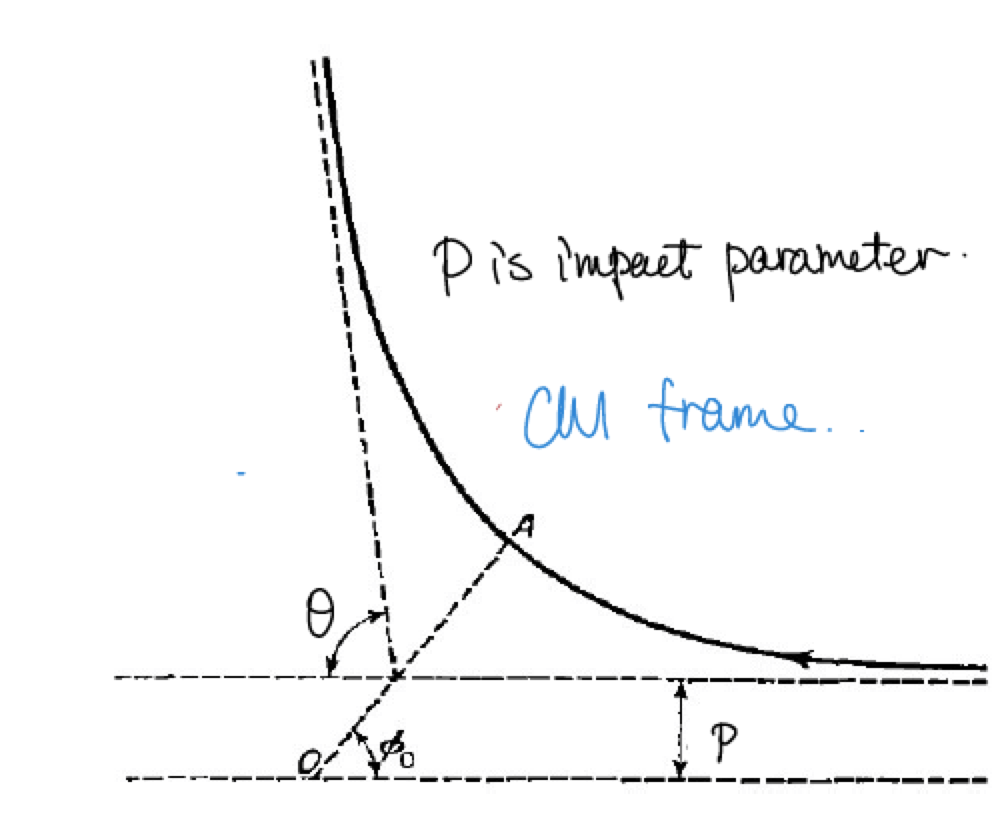 P is impact parameter.
CM frame..
A
θ
P
O
ϕ₀